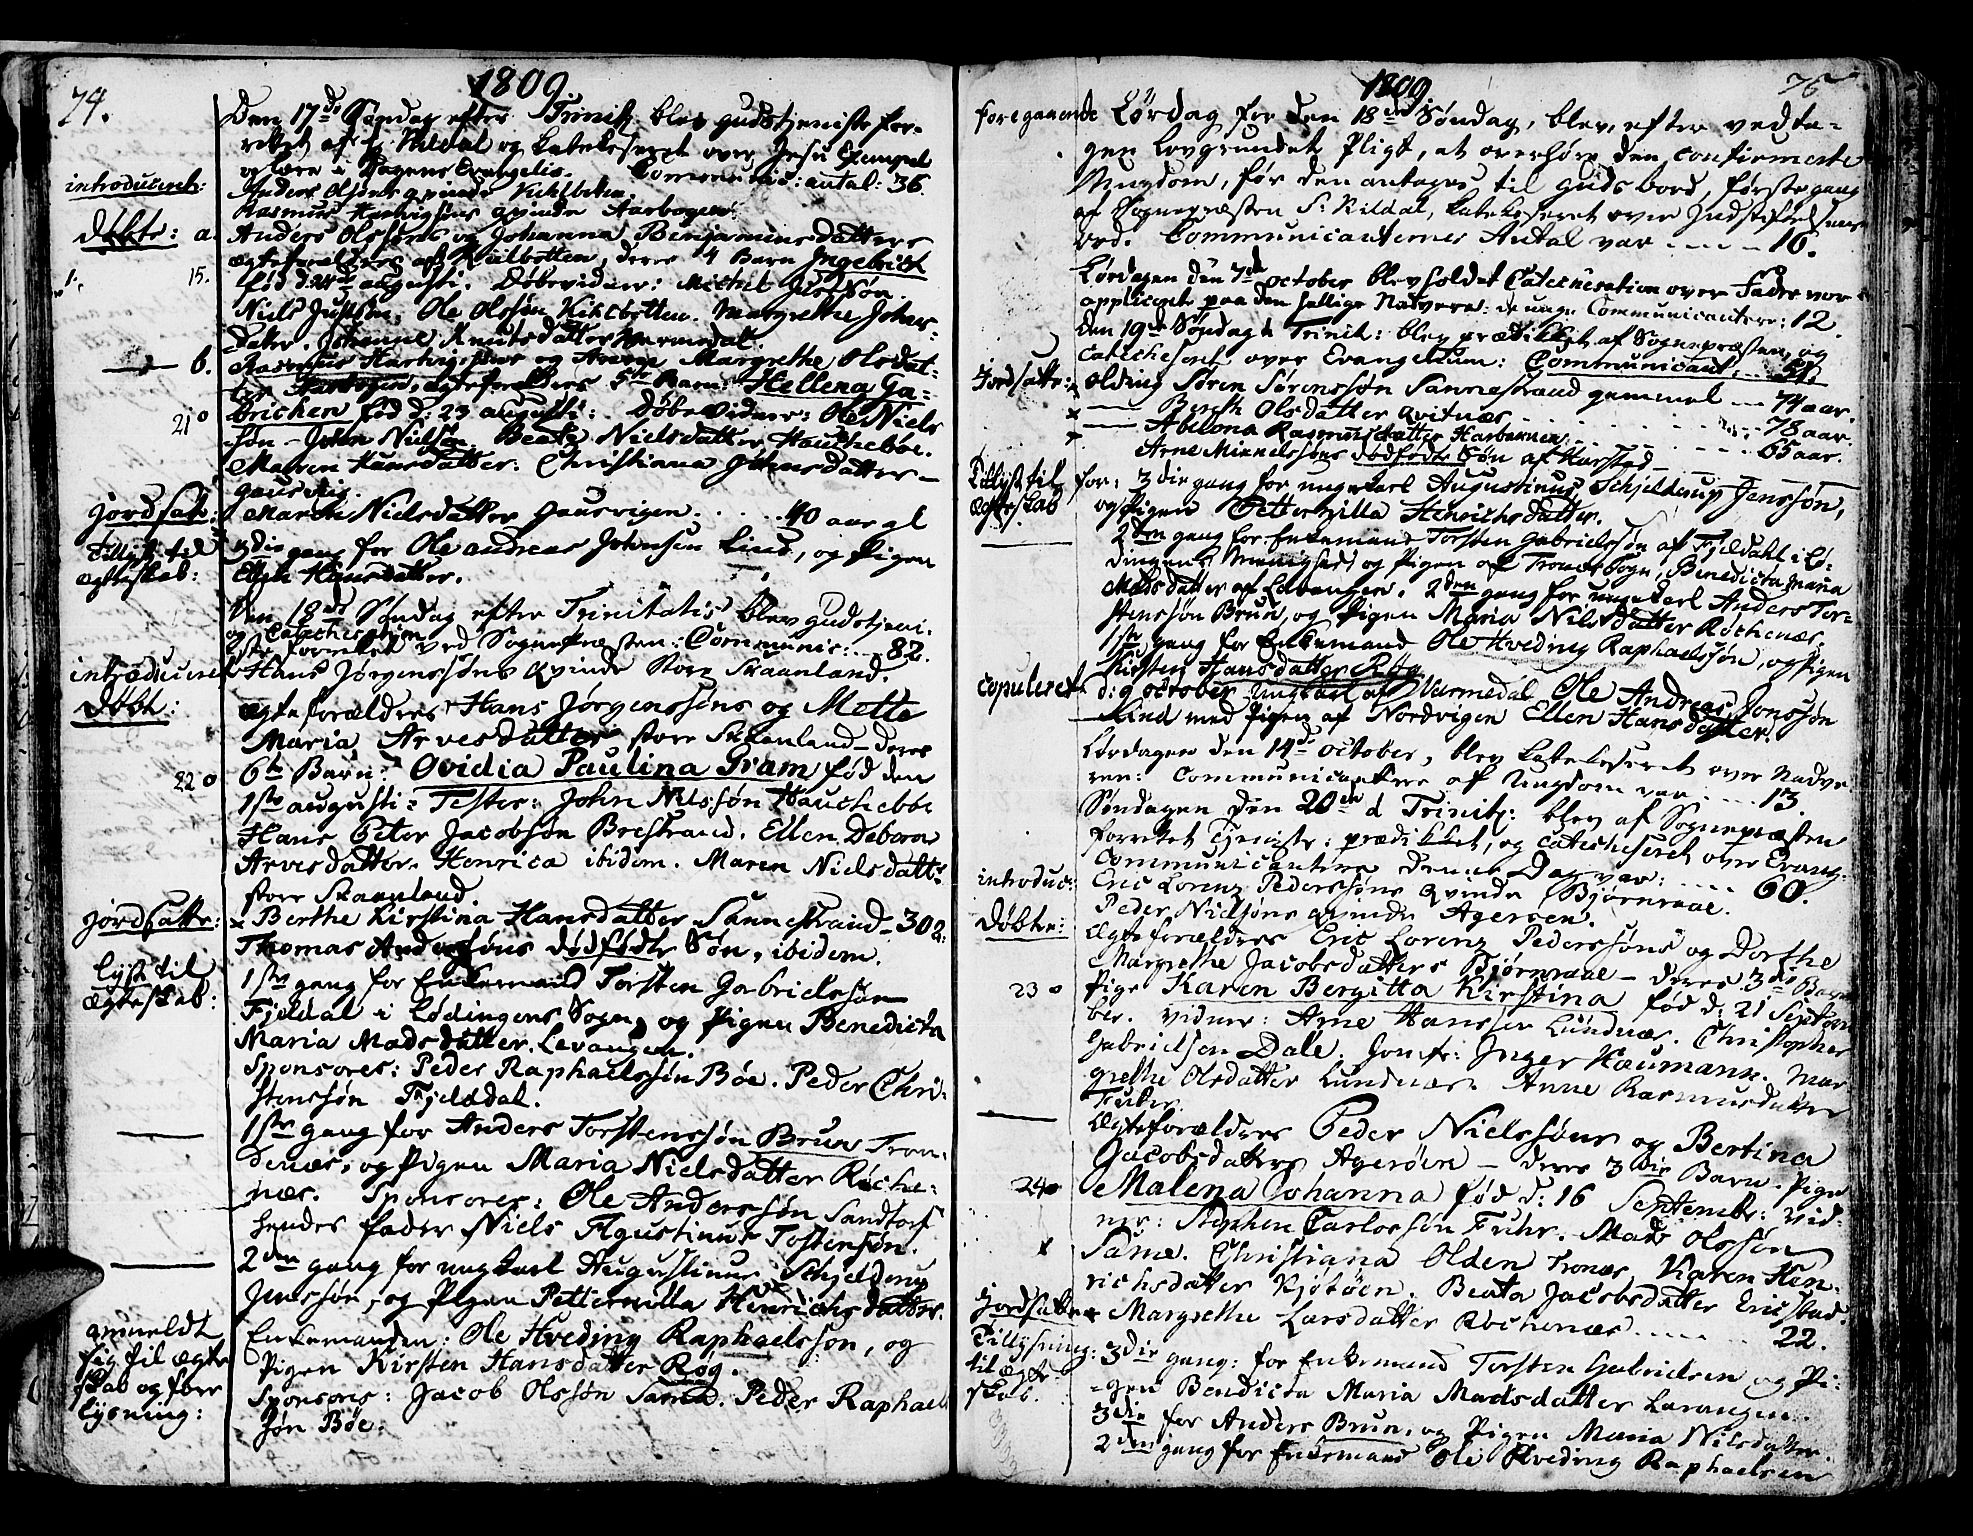 74.
1809.
Den 17de Søndag efter Trinit: blev gudstjeniste for-
rettet af Hr Kildal og Katekeseret over Jesu Exempel
og lære i Dagens Evangelie. Communic: antal: 36.
introduceret:
Anders Olsøns qvinde Kihlbotten.
Rasmus Hartvigsøns qvinde Aarbogen.
Døbte: a.
Anders Olssøns og Johanna Benjaminsdatters
ægteforældres af Kiilbotten, deres 4 Barn Ingebrict
1. 15.
fød d: 24de augusti. Døbevidner: Michel Justsøn
Niels Justsøn. Ole Olssøn Kihlbotten. Margrethe Johns-
Datter. Johanne Knutsdatter Varmedal.
6.
Rasmus Hartvigsøns og Margrethe Olsdat-
ter Aarbogen, ægteforældres 5te Barn: Hellena Ga-
21 o
brichen fød d: 23 augusti: Døbevidner: Ole Niels
søn - John Nielsøn. Beate Nielsdatter Houcheboe.
Maren Hansdatter: Christiana Johnsdatter -
Gausvig.
jordsatt:
Maren Nielsdatter Gausvigen. . . . . 40 aar gl
Tillyst til
ægteskab:
3die gang for Ole andreas Johnsen Lind, og Pigen
Ellen Hansdatter.
Den 18de Søndag efter Trinitatis blev gudstjeni-
og Catechesation
ste forrettet ved Sognepræsten: Communic: . . 82.
introduceret
Hans Jørgenssøns qvinde Store Skaanland.
Døbt:
ægteforældres Hans Jørgenssøns og Mette
Maria Arvesdatter store Skaanland - deres
22 o
6te Barn: Ovidia Paulina Gram fød den
1ste augusti: Testes: John Nilssøn Houchebøe
Hans Peter Jacobsøn Brestrand. Ellen Debora
Arvesdatter. Henrica ibidem. Maren Nielsdattr:
store Skaanland.
jordsatte:
x Berthe Kirstina Hansdatter Sannestrand - 30 a:
Thomas Andersøns dødfødte Søn, ibidem.
lyst til
ægteskab:
1ste gang for Enkemand Torsten Gabrielssøn
Fjeldal i Lødingens Sogn, og Pigen Benedicta
Maria Madsdatter. Levangen.
Sponsores: Peder Raphaelssøn Bøe. Peder Chri-
stenssøn Fjelddal.
1ste gang for Anders Torstenssøn Brun Tron-
denæs, og Pigen Maria Nielsdatter Røche-
næs. Sponsores: Ole Anderssøn Sandtorf
hendes fader Niels Agustinus Tostensøn.
2den gang for ungkarl Augustinus Schjelderup
Jenssøn, og Pigen Petternilla Henrichsdatter.
anmeldt
sig til ægte
skab og før
lysning:
Enkemanden: Ole Hveding Raphaelsson, og
Pigen Kirsten Hansdatter Røg.
Sponsores: Jacob Olssøn Sama. Peder Raphael
søn Bøe.
1809
75
foregaaende Lørdag for den 18de Søndag, blev, efter vedta-
gen lovgrundet Pligt, at overhøre den confirmerte
Ungdom, før den antages til Guds bord, første gang
af Sognepræsten Sr Kildal, Katekeseret over Indstiftelsens
ord. Communicanternes Antal var . . . . 16.
Lørdagen den 7de october blev holdet Catechesation over Fader vor
appliceret paa den hellige Nadvere: de unge Communicantere: 12.
Den 19de Søndag Trinit: blev prædikket af Sognepræsten, og
Catecheseret over Evangelium: Communicant: . . 51.
Jordsatte:
x olding Søren Sørenssøn Sannestrand gammel . . . 74 aar.
x Bereth Olsdatter Qvitnæs . . . . 78 aar.
x Abelona Rasmusdatter Harbarnen . . . . 65 aar.
Arne Mikkelssøns dødfødte Søn af Harstad
Tillyst til
Ægteskab
for: 3die gang for ungekarl Augustinus Schjelderup Jenssøn,
og Pigen Petternilla Henrichsdatter.
2den gang for Enkemand Torsten Gabrielssøn af Fjeldahl i Lø-
dingens Menighed, og Pigen af Tronæs Sogn, Benedicta Maria
Madsdatter af Levangen. 2den gang for ungekarl Anders Tor-
stenssøn Brun, og Pigen Maria Nilsdatter Røchenæs.
1ste gang for Enkemand Ole Hveding Raphaelssøn, og Pigen
Kirsten Hansdatter Røg
copuleret
d: 9 october Ungkarl af Varmedal Ole Andreas Jonssøn
Lind med Pigen af Nordvigen Ellen Hansdatter.
Lørdagen den 14de october, blev katekeseret over Nadve-
ren: Communicantere af Ungdom var . . . . 13.
Søndagen den 20de Trinit: blev af Sognepræsten
forrettet Tjeniste: prædikket, og catecheseret over Evang:
Communicantere denne Dag var: . . . . 60.
introduc:
Eric Lorenz Pederssøns qvinde Bjørnraae.
Peder Nielssøns qvinde Agerøen.
Døbte:
ægteforældres Eric Lorenz Pederssøns og Dorthe
Margrethe Jacobsdatters Bjørnraae - deres 3die Barn
23 o
pige Karen Bergitta Kirstina fød d: 21 Septem
ber. vidner: Arne Hanssen Lundnæs. Christopher
Gabrielsøn Dale. Jomfr: Inger Houmann. Mar-
grethe Olsdatter Lundnæs. Anne Rasmusdatter
Ægteforældres Peder Nielssøns og Bertina
Jacobsdatters Agerøen - deres 3die Barn. Pige
24 o
Malena Johanna fød d: 16 September: vid-
ner: Stephen Carlossøn Fuhr. Mads Olssøn
x
Same. Christiana Olden Tronæs. Karen Hen-
richsdatter Kjøtøen. Beata Jacobsdatter Ericstad.
jordsatte
x Margrethe Larsdatter Røchenæs . . . . 22.
Tillysning:
til ægte-
skab.
3die gang: for Enkemand Torsten Gabrielsen og Pi-
gen Bendicta Maria Madsdatter Levangen.
3die for Anders Brun, og Pigen Maria Nilsdatter.
2den gang for Enkemand Ole Hveding Raphaelsen